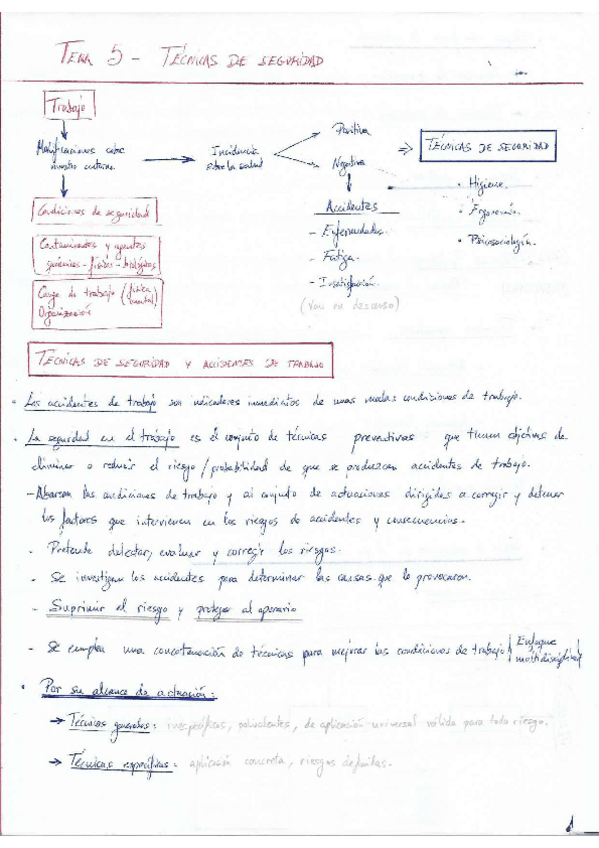 TEMA 5 - TÉCNICAS DE SEGURIDAD
Trabajo
Modificaciones sobre
nuestro entorno
Incidencia
sobre la salud
Positiva
Negativa
TÉCNICAS DE SEGURIDAD
· Higiene.
· Ergonomía.
· Psicosociología.
Accidentes
- Enfermedades.
- Fatiga.
- Insatisfacción.
(Van en descenso)
Condiciones de seguridad
Contaminantes y agentes
químicos - físicos - biológicos
Carga de trabajo (física mental)
Organización
TÉCNICAS DE SEGURIDAD Y ACCIDENTES DE TRABAJO
· Los accidentes de trabajo son indicadores inmediatos de unas malas condiciones de trabajo.
· La seguridad en el trabajo es el conjunto de técnicas preventivas que tienen objetivos de
eliminar o reducir el riesgo/probabilidad de que se produzcan accidentes de trabajo.
- Abarcan las condiciones de trabajo y al conjunto de actuaciones dirigidas a corregir y detener
los factores que intervienen en los riesgos de accidentes y consecuencias.
- Pretende detectar, evaluar y corregir los riesgos.
- Se investigan los accidentes para determinar las causas que lo provocaron.
- Suprimir el riesgo y proteger al operario
- Se emplea una concatenación de técnicas para mejorar las condiciones de trabajo / Enfoque multidisciplinar /
· Por su alcance de actuación:
→ Técnicas generales: inespecíficas, polivalentes, de aplicación universal válida para todo riesgo.
→ Técnicas específicas: aplicación concreta, riesgos definidos.
1